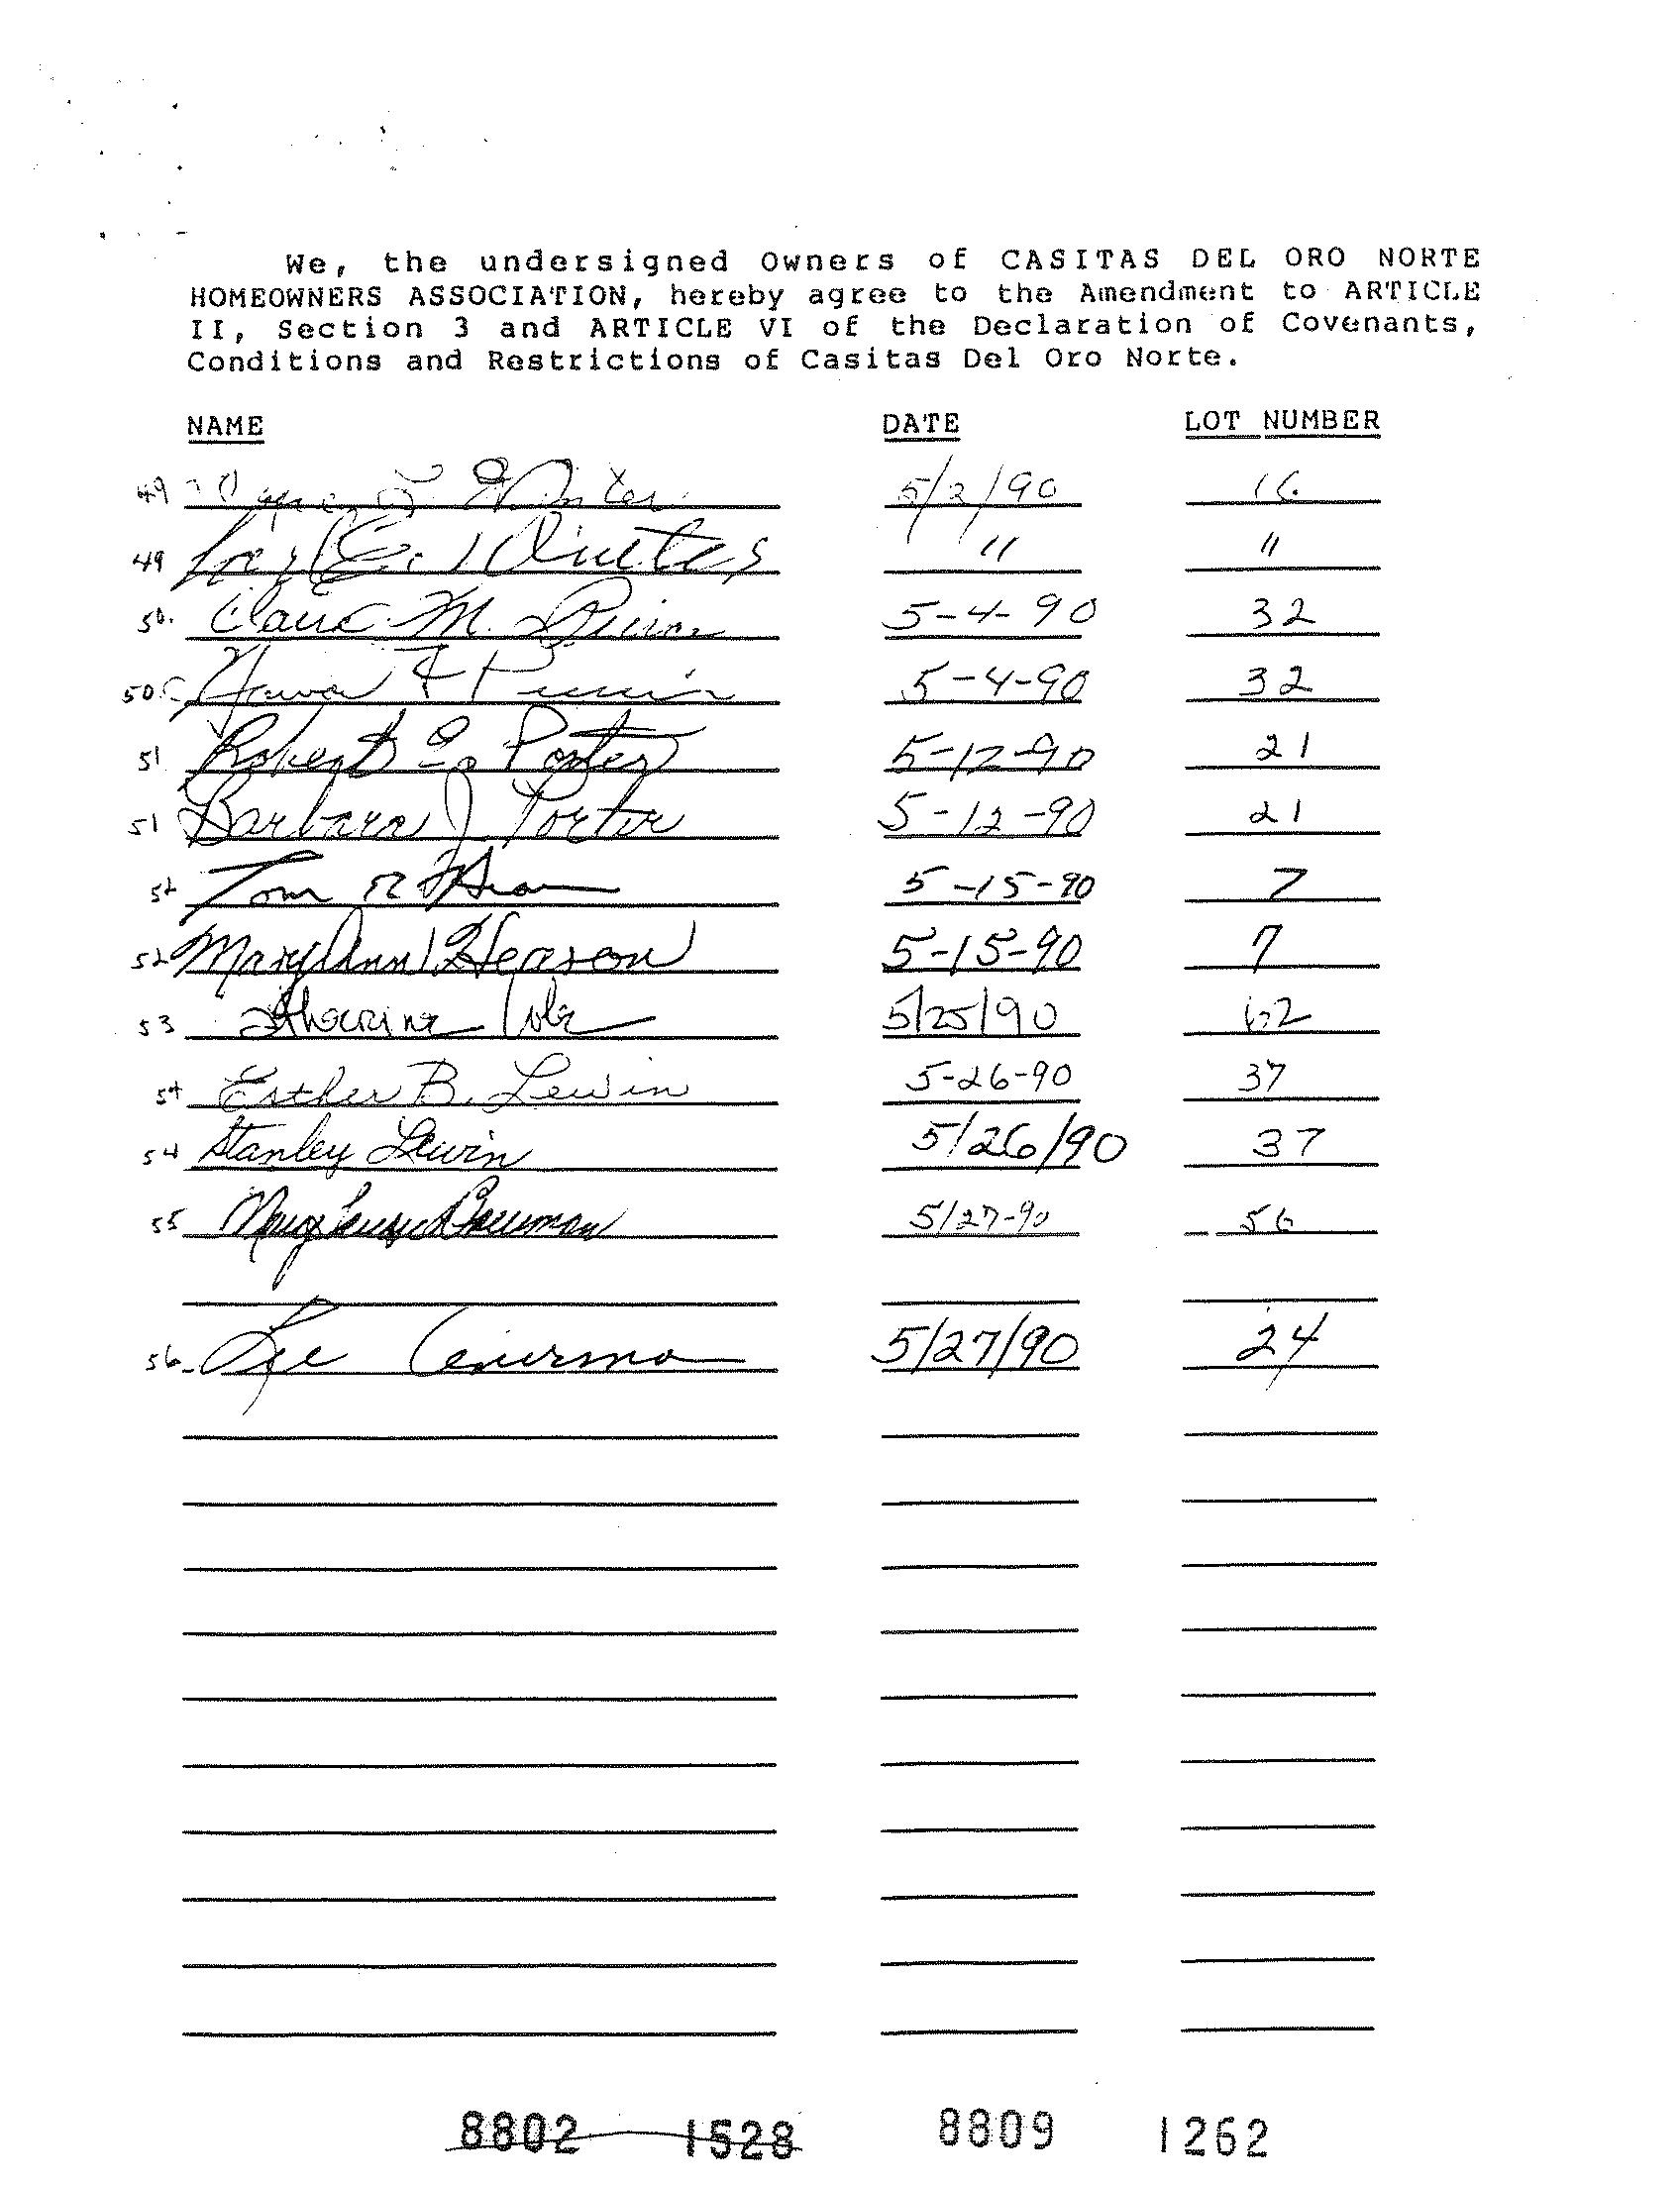 We, the undersigned Owners of CASITAS DEL ORO NORTE
HOMEOWNERS ASSOCIATION, hereby agree to the Amendment to ARTICLE
II, Section 3 and ARTICLE VI of the Declaration of Covenants,
Conditions and Restrictions of Casitas Del Oro Norte.
NAME DATE LOT NUMBER
49 5/2/90 16
49 " "
50. M. 5-4-90 32
50 5-4-90 32
51 Robert Porter 5-12-90 21
51 Barbara J Porter 5-12-90 21
52 Tom R 5-15-90 7
52 MaryAnn Hearon 5-15-90 7
53 5/25/90 62
54 Esther B. Lewin 5-26-90 37
54 Stanley Lewin 5/26/90 37
55 Bauman 5/27-90 56
56 Lee 5/27/90 24
8802 1528 8809 1262